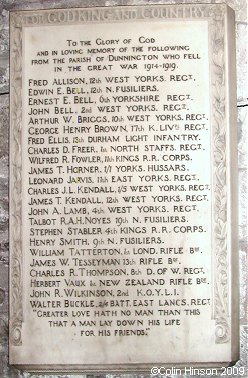 FOR GOD KING AND COUNTRY
TO THE GLORY OF GOD
AND IN LOVING MEMORY OF THE FOLLOWING
FROM THE PARISH OF DUNNINGTON WHO FELL
IN THE GREAT WAR 1914-1919.
FRED ALLISON, 12th WEST YORKS. REGT.
EDWIN E. BELL, 12th N. FUSILIERS.
ERNEST E. BELL, 9th YORKSHIRE REGT.
JOHN BELL, 2nd WEST YORKS. REGT.
ARTHUR W. BRIGGS, 10th WEST YORKS. REGT.
GEORGE HENRY BROWN, 17th K. LIVPL REGT.
FRED ELLIS, 13th DURHAM LIGHT INFANTRY.
CHARLES D. FREER, 1st NORTH STAFFS. REGT.
WILFRED R. FOWLER, 11th KINGS R.R. CORPS.
JAMES T. HORNER, 1/1 YORKS. HUSSARS.
LEONARD JARVIS, 11th EAST YORKS. REGT.
CHARLES J.L. KENDALL, 1/5 WEST YORKS. REGT.
JAMES T. KENDALL, 12th WEST YORKS. REGT.
JOHN A. LAMB, 4th WEST YORKS. REGT.
TALBOT R.A.H. NOYES 19th N. FUSILIERS.
STEPHEN STABLER 4th KINGS R.R. CORPS.
HENRY SMITH, 9th N. FUSILIERS.
WILLIAM TATTERTON, 1st LOND. RIFLE BDE.
JAMES W. TESSEYMAN 13th RIFLE BDE.
CHARLES R. THOMPSON, 8th D. OF W. REGT.
HERBERT VAUX 1st NEW ZEALAND RIFLE BDE.
JOHN R. WILKINSON, 2nd K.O.Y.L.I.
WALTER BUCKLE, 2/4 BATT. EAST LANCS. REGT.
"GREATER LOVE HATH NO MAN THAN THIS
THAT A MAN LAY DOWN HIS LIFE
FOR HIS FRIENDS."
©Colin Hinson 2009